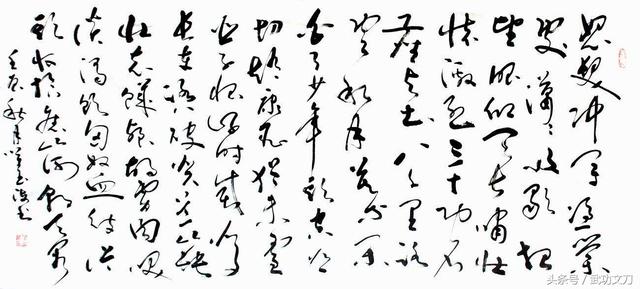 怒发冲冠凭栏
处潇潇雨歇抬
望眼仰天长啸壮
怀激烈三十功名
尘与土八千里路
云和月莫等闲
白了少年头空悲
切靖康耻犹未雪
臣子恨何时灭驾
长车踏破贺兰山缺
壮志饥餐胡虏肉笑
谈渴饮匈奴血待从
头收拾旧山河朝天阙
壬辰秋月
头条号 / 武功文刀